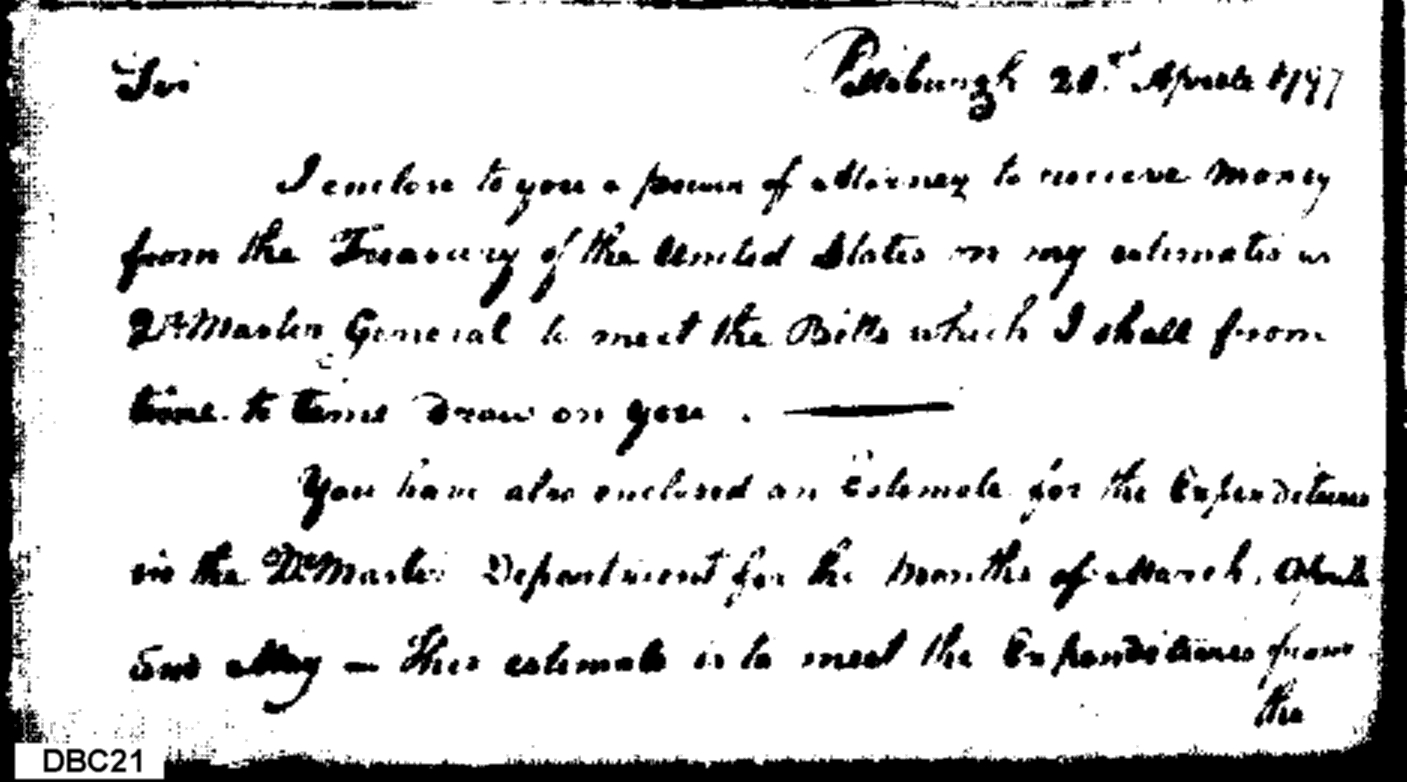 Sir Pittsburgh 21st Aprile 1797
I enclose to you a power of attorney to receive money
from the Treasury of the United States on my estimates as
Qr Master General to meet the Bills which I shall from
time to time draw on you. —
You have also enclosed an Estimate for the Expenditures
in the Qr Master Department for the Months of March, Aprile
and May — This estimate is to meet the Expenditures from
the
DBC21